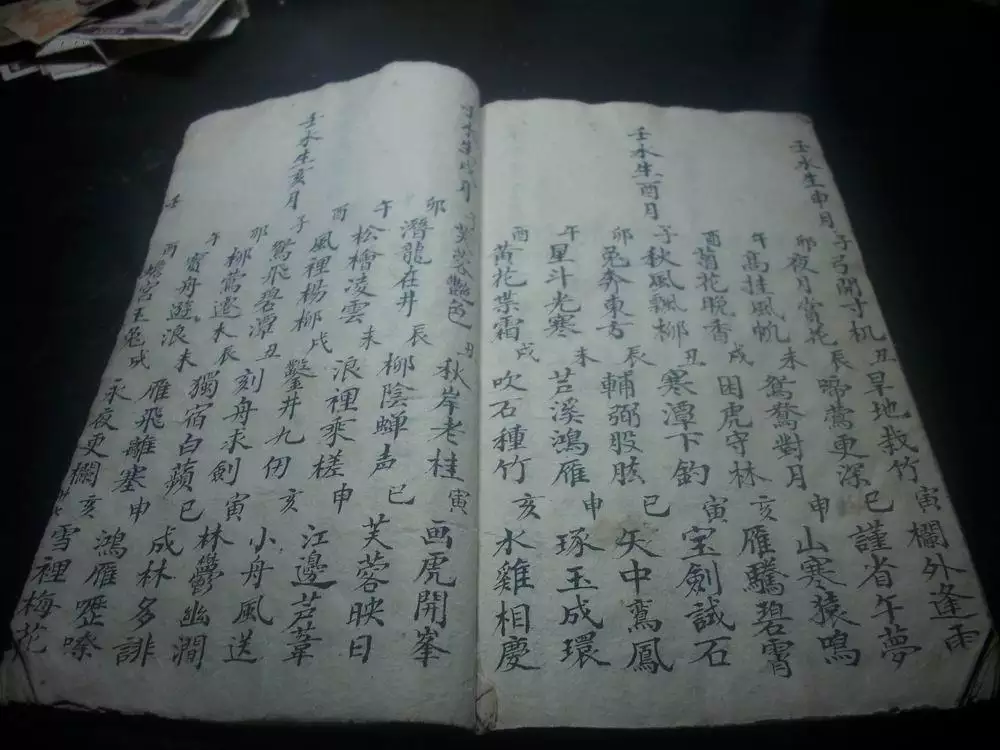 壬水生申月
子弓開寸机 丑旱地栽竹 寅欄外逢雨
卯夜月賞花 辰啼鶯更深 巳謹省午夢
午高挂風帆 未鴛鴦對月 申山寒猿鳴
酉菊花晚香 戌困虎守林 亥雁騰碧霄
壬水生酉月
子秋風飄柳 丑寒潭下釣 寅宝劍試石
卯兔奔東方 辰輔弼股肱 巳矢中鸞鳳
午星斗光寒 未芦溪鴻雁 申琢玉成環
酉黄花業霜 戌吹石種竹 亥水雞相慶
壬水生戌月
芙蓉艷色 丑秋岸老桂 寅画虎開峯
卯潛龍在井 辰柳陰蟬声 巳芙蓉映日
午松檜凌雲 未浪裡乘槎 申江邊芦葦
酉風裡楊柳 戌鑿井九仞 亥小舟風送
壬水生亥月
子鴛飛碧潭 丑刻舟求劍 寅林鬱幽澗
卯柳鶯遷木 辰獨宿白蘋 巳成林多誹
午寳舟遊浪 未雁飛離塞 申鴻雁嚦嗦
酉蟾宮玉兔 戌永夜更欄 亥雪裡梅花
壬